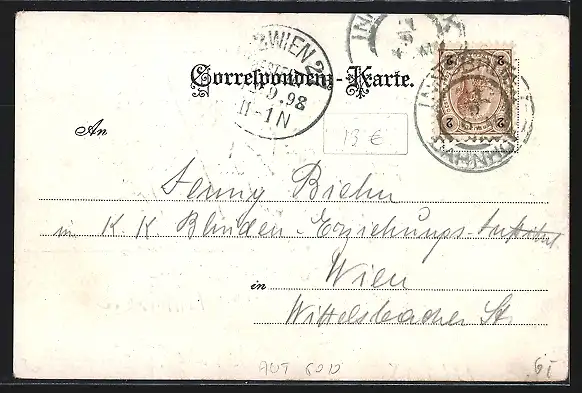 WIEN 2
9.98
II-1N
2 2
2 2
BAHNHOF
Correspondenz-Karte.
13 €
An
Jenny Biehn
in K. K. Blinden-Erziehungs-Institut
in Wien
Wittelsbacher St
AUT 60 D